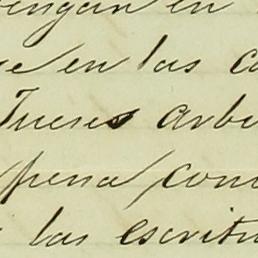 vengan en
e en las c
Jueces arbi
pena con
las escritu